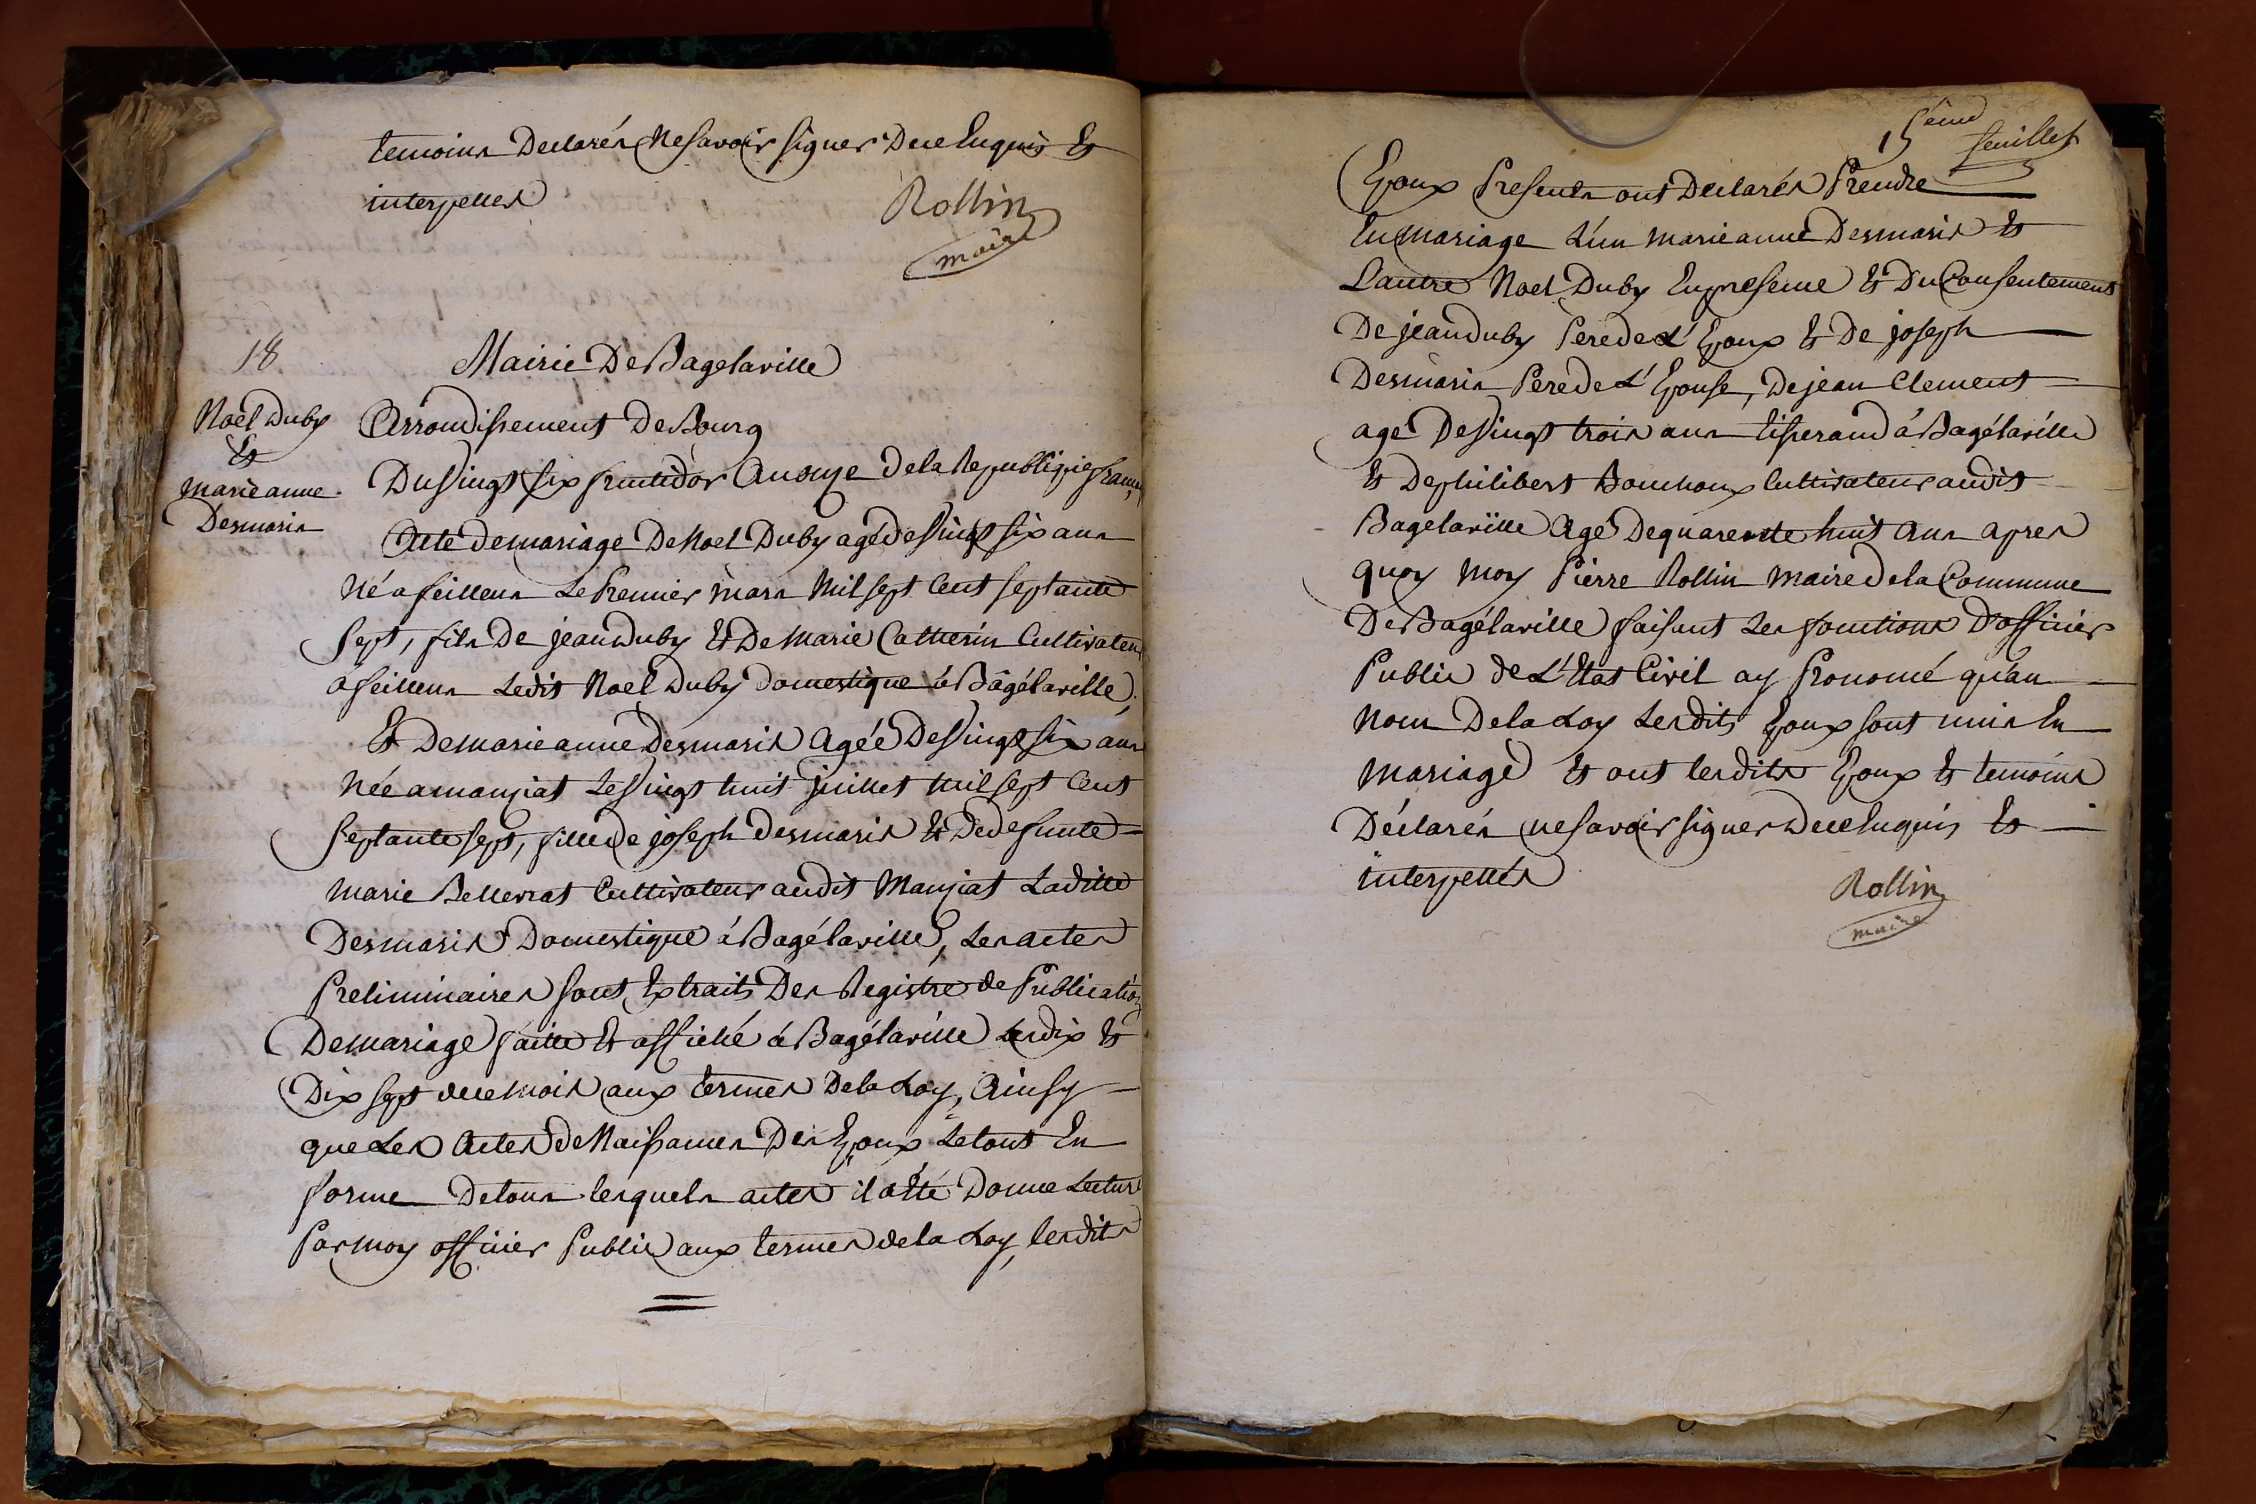 temoins Declarés Ne savoir signer De ce Enquis Et
interpellés
Rollin
maire
18
Mairie De Bagelaville
Noël Duby
Et
marie anne
Desmaris
Arrondissement De Bourg
Du Vingt six fructidor an onze de la Republique franc
Acte de mariage De Noel Duby agé de Vingt six ans
Né a feillens Le Premier mars Mil sept Cent septante
sept, fils De jean Duby Et De Marie Catherin Cultivateur
a feillens Ledit Noel Duby Domestique á Bâgélaville,
Et De marie anne Desmaris Agée De Vingt six ans
Née a manziat Le Vingt huit juillet Mil sept Cent
septante sept, fille de joseph Desmaris Et De defunte
Marie Bellevrat Cultivateur audit Manziat Laditte
Desmaris Domestique á Bagélaville, Les actes
Preliminaires sont Extraits Des Registre de Publication
De mariage faitte Et affiché á Bagélaville Le dix Et
Dix sept de ce mois aux termes De la Loy, Ainsy
que Les Actes de Naissances Des Epoux Le tout En
forme De tous lesquels actes il a Eté Donné Lecture
Par moy officier Public aux termes de la Loy, lesdits
15ème
feuillet
Epoux Presents ont Declarés Prendre
En mariage L'un marie anne Desmaris Et
L'autre Noel Duby En presence Et Du Consentement
De jean Duby Pere de L'Epoux Et De joseph
Desmaris Pere de L'Epouse, De jean Clement
agé De Vingt trois ans tisserand á Bagélaville
Et De philibert Bouchoux Cultivateur audit
Bagelaville Agé De quarente huit Ans apres
quoy moy Pierre Rollin Maire de la Commune
De Bagélaville faisant Les fonctions D'officier
Public de L'Etat Civil ay Prononcé qu'au
Nom De la Loy Lesdits Epoux sont unis En
mariage Et ont lesdits Epoux Et temoins
Déclarés ne savoir signer De ce Enquis Et
interpellés
Rollin
maire